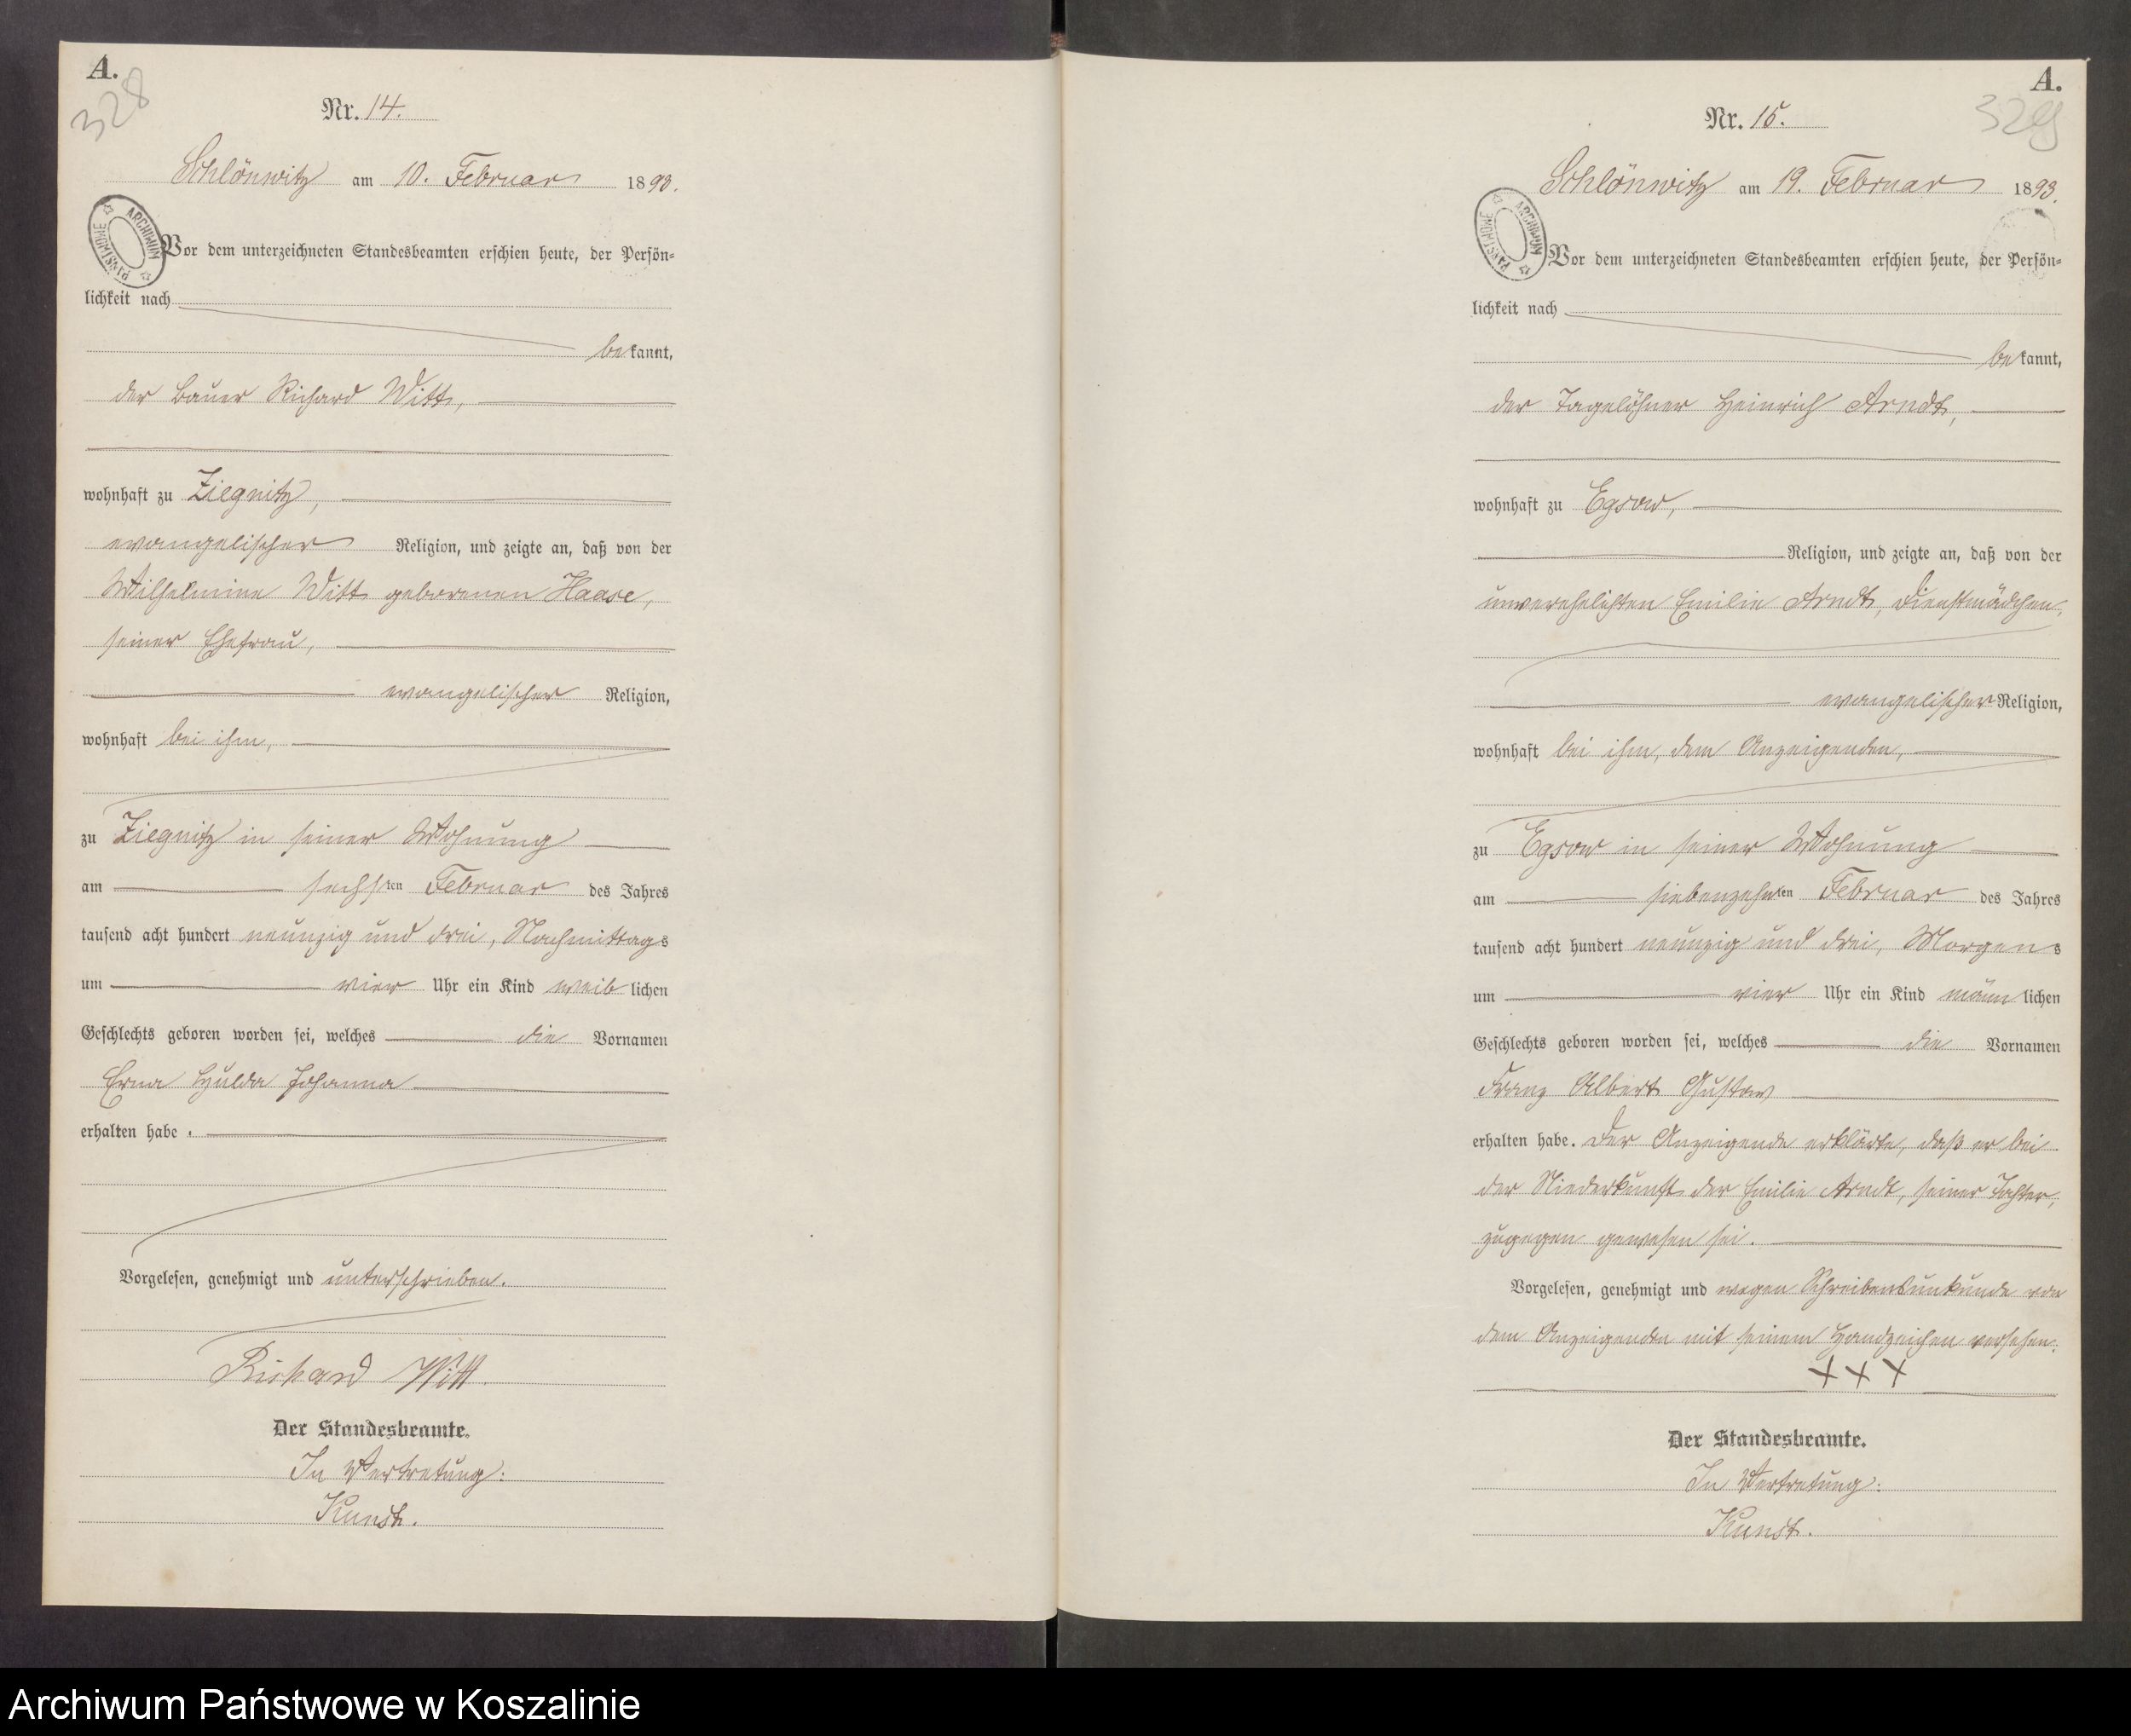 A.
328
Nr. 14.
Schlönwitz am 10. Februar 1893.
ARCHIWUM PAŃSTWOWE
Vor dem unterzeichneten Standesbeamten erschien heute, der Persön=
lichkeit nach
bekannt,
der Bauer Richard Witt,
wohnhaft zu Ziegnitz,
evangelischer Religion, und zeigte an, daß von der
Wilhelmine Witt geborenen Haase,
seiner Ehefrau,
evangelischer Religion,
wohnhaft bei ihm,
zu Ziegnitz in seiner Wohnung
am sechsten Februar des Jahres
tausend acht hundert neunzig und drei, Nachmittags
um vier Uhr ein Kind weiblichen
Geschlechts geboren worden sei, welches die Vornamen
Erna Hulda Johanna
erhalten habe.
Vorgelesen, genehmigt und unterschrieben.
Richard Witt.
Der Standesbeamte.
In Vertretung:
Kunst.
A.
329
Nr. 15.
Schlönwitz am 19. Februar 1893.
ARCHIWUM PAŃSTWOWE
Vor dem unterzeichneten Standesbeamten erschien heute, der Persön=
lichkeit nach
bekannt,
der Tagelöhner Heinrich Arndt,
wohnhaft zu Egsow,
Religion, und zeigte an, daß von der
unverehelichten Emilie Arndt, Dienstmädchen,
evangelischer Religion,
wohnhaft bei ihm, dem Anzeigenden,
zu Egsow in seiner Wohnung
am siebenzehnten Februar des Jahres
tausend acht hundert neunzig und drei, Morgens
um vier Uhr ein Kind männlichen
Geschlechts geboren worden sei, welches die Vornamen
Franz Albert Gustav
erhalten habe. Der Anzeigende erklärte, daß er bei
der Niederkunft der Emilie Arndt, seiner Tochter,
zugegen gewesen sei.
Vorgelesen, genehmigt und wegen Schreibensunkunde von
dem Anzeigenden mit seinem Handzeichen versehen.
XXX
Der Standesbeamte.
In Vertretung:
Kunst.
Archiwum Państwowe w Koszalinie